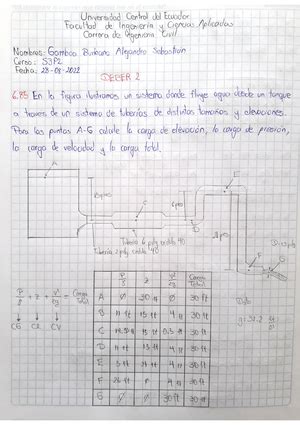 Universidad Central del Ecuador
Facultad de Ingeniería y Ciencias Aplicadas
Carrera de Ingeniería Civil
Nombres: Gamboa Alejandro Sebastián
Curso: S3P2
Fecha: 23-08-2022
DEBER 2
6.85 En la figura ilustramos un sistema donde fluye agua desde un tanque
a traves de un sistema de tuberías de distintos tamaños y elevaciones.
Para los puntos A-G calcule la carga de elevación, la carga de presión,
la carga de velocidad y la carga total.
A
E
15 pies
6 pies
B
C
D
Tubería 6 pulg cedula 40
Tubería 2 pulg cedula 40
F
G
P/γ z v²/2g Carga Total
P/γ + z + v²/2g = Carga Total
CP CE CV
A Ø 30 ft Ø 30 ft
B 11 ft 15 ft 4 ft 30 ft
C 15 ft 0.5 ft 30 ft
D 11 ft 15 ft 4 ft 30 ft
E 4 ft 30 ft
F 26 ft 4 ft 30 ft
G Ø Ø 30 ft 30 ft